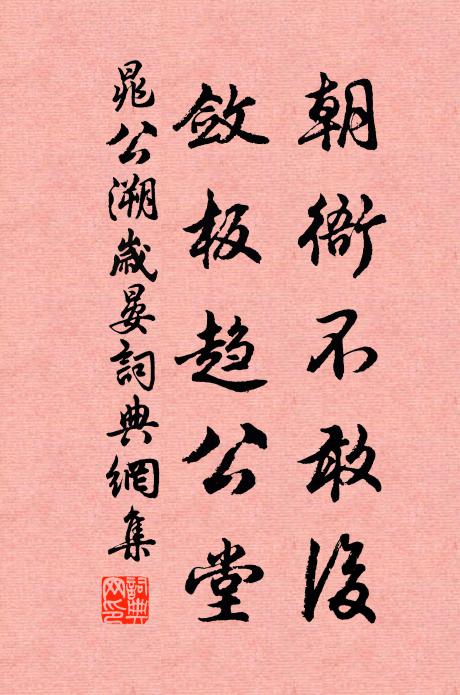 朝衙不敢後
斂板趨公堂
晁公溯歲晏詞典網集
詞典網印